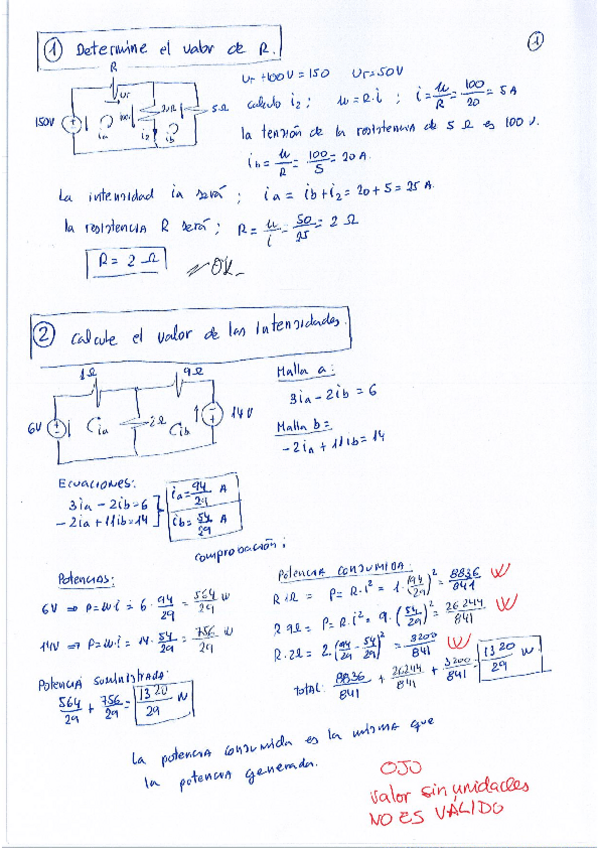 ① Determine el valor de R.
①
R
Ur
150V
100V
20Ω
5Ω
ia
i2
ib
Ur + 100V = 150    Ur = 50V
calculo i2; u = R.i ; i = u/R = 100/20 = 5 A
la tensión de la resistencia de 5 Ω es 100 V.
ib = u/R = 100/5 = 20 A.
La intensidad ia será; ia = ib + i2 = 20 + 5 = 25 A.
la resistencia R será; R = u/i = 50/25 = 2 Ω
R = 2 Ω
OK
② Calcule el valor de las intensidades.
1Ω
9Ω
6V
ia
2Ω
ib
14V
Malla a:
3ia - 2ib = 6
Malla b=
-2ia + 11ib = 14
Ecuaciones:
3ia - 2ib = 6
-2ia + 11ib = 14
ia = 94/29 A
ib = 54/29 A
comprobación;
Potencias:
6V ⇒ P = u.i = 6 · 94/29 = 564/29 W
14V ⇒ P = u.i = 14 · 54/29 = 756/29 W
Potencia suministrada:
564/29 + 756/29 = 1320/29 W
Potencia consumida:
R 1Ω = P = R.i² = 1 · (94/29)² = 8836/841 W
R 9Ω = P = R.i² = 9 · (54/29)² = 26244/841 W
R. 2Ω = 2 · (94/29 - 54/29)² = 3200/841 W
Total: 8836/841 + 26244/841 + 3200/841 = 1320/29 W
La potencia consumida es la misma que
la potencia generada.
OJO
Valor sin unidades
NO ES VÁLIDO